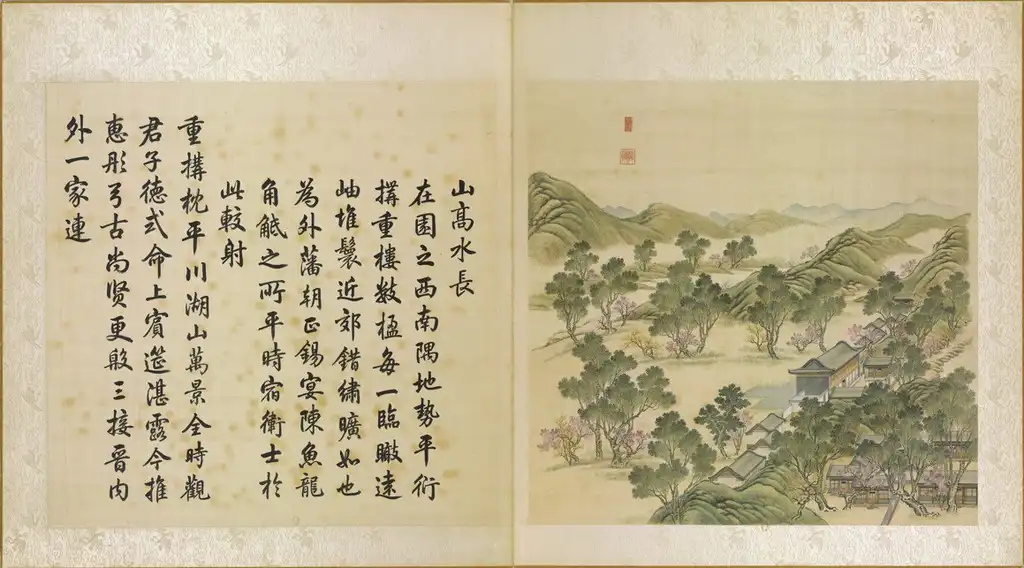 山高水長
在園之西南隅地勢平衍
搆重樓數楹每一臨瞰遠
岫堆鬟近郊錯繡曠如也
為外藩朝正錫宴陳魚龍
角觝之所平時宿衛士於
此較射
重搆枕平川湖山萬景全時觀
君子德式命上賓筵湛露今推
惠彤弓古尚贤更殷三接晉内
外一家連